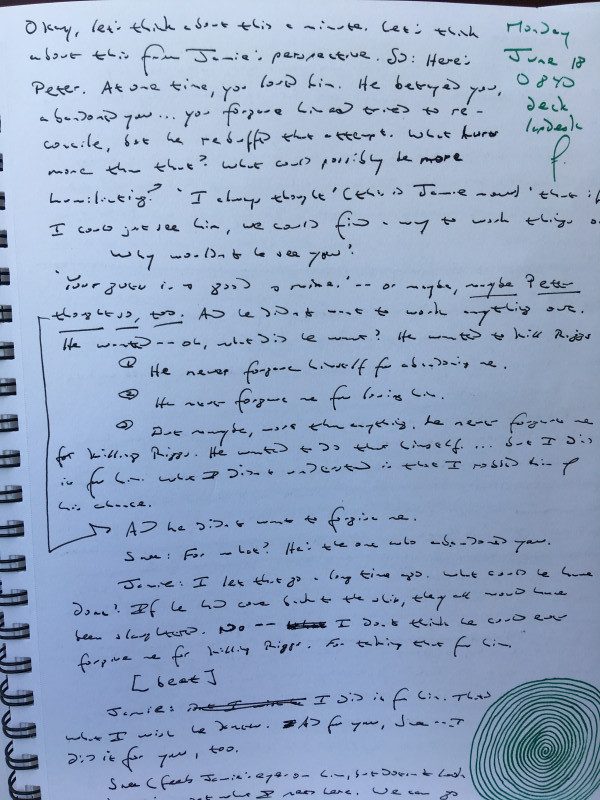 Okay, let's think about this a minute. Let's think
about this from Jamie's perspective. So: Here's
Peter. At one time, you loved him. He betrayed you,
abandoned you... you forgave him and tried to re-
concile, but he rebuffed that attempt. What hurts
more than that? What could possibly be more
humiliating? 'I always thought' (this is Jamie now) 'that if
I could just see him, we could find a way to work things
Why wouldn't he see you?'
'Your guess is as good as mine.' -- or maybe, maybe Peter
thought so, too. And he didn't want to work anything out.
He wanted -- oh, what did he want? He wanted to kill Riggs
① He never forgave himself for abandoning me.
② He never forgave me for loving him.
③ But maybe, more than anything, he never forgave me
for killing Riggs. He wanted to do that himself... but I did
it for him. What I didn't understand is that I robbed him of
his chance.
And he didn't want to forgive me.
: For what? He's the one who abandoned you.
Jamie: I let that go a long time ago. What could he have
done? If he had come back to the ship, they all would have
been slaughtered. No -- I don't think he could ever
forgive me for killing Riggs. For taking that from him.
[beat]
Jamie: I did it for him. That's
what I wish he knew. And for you, -- I
did it for you, too.
(feels Jamie's eyes on him, but doesn't look
what I need here. We can go
Monday
June 18
0840
deck